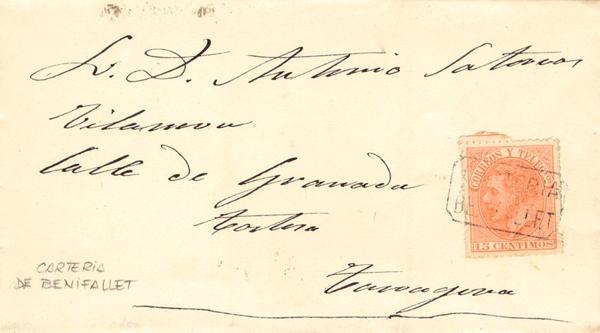 Sr. D. Antonio Satorras
Vilanova
Calle de Granada
Tortosa
Tarragona
CORREOS Y TELEG
15 CENTIMOS
CARTERIA
DE BENIFALLET